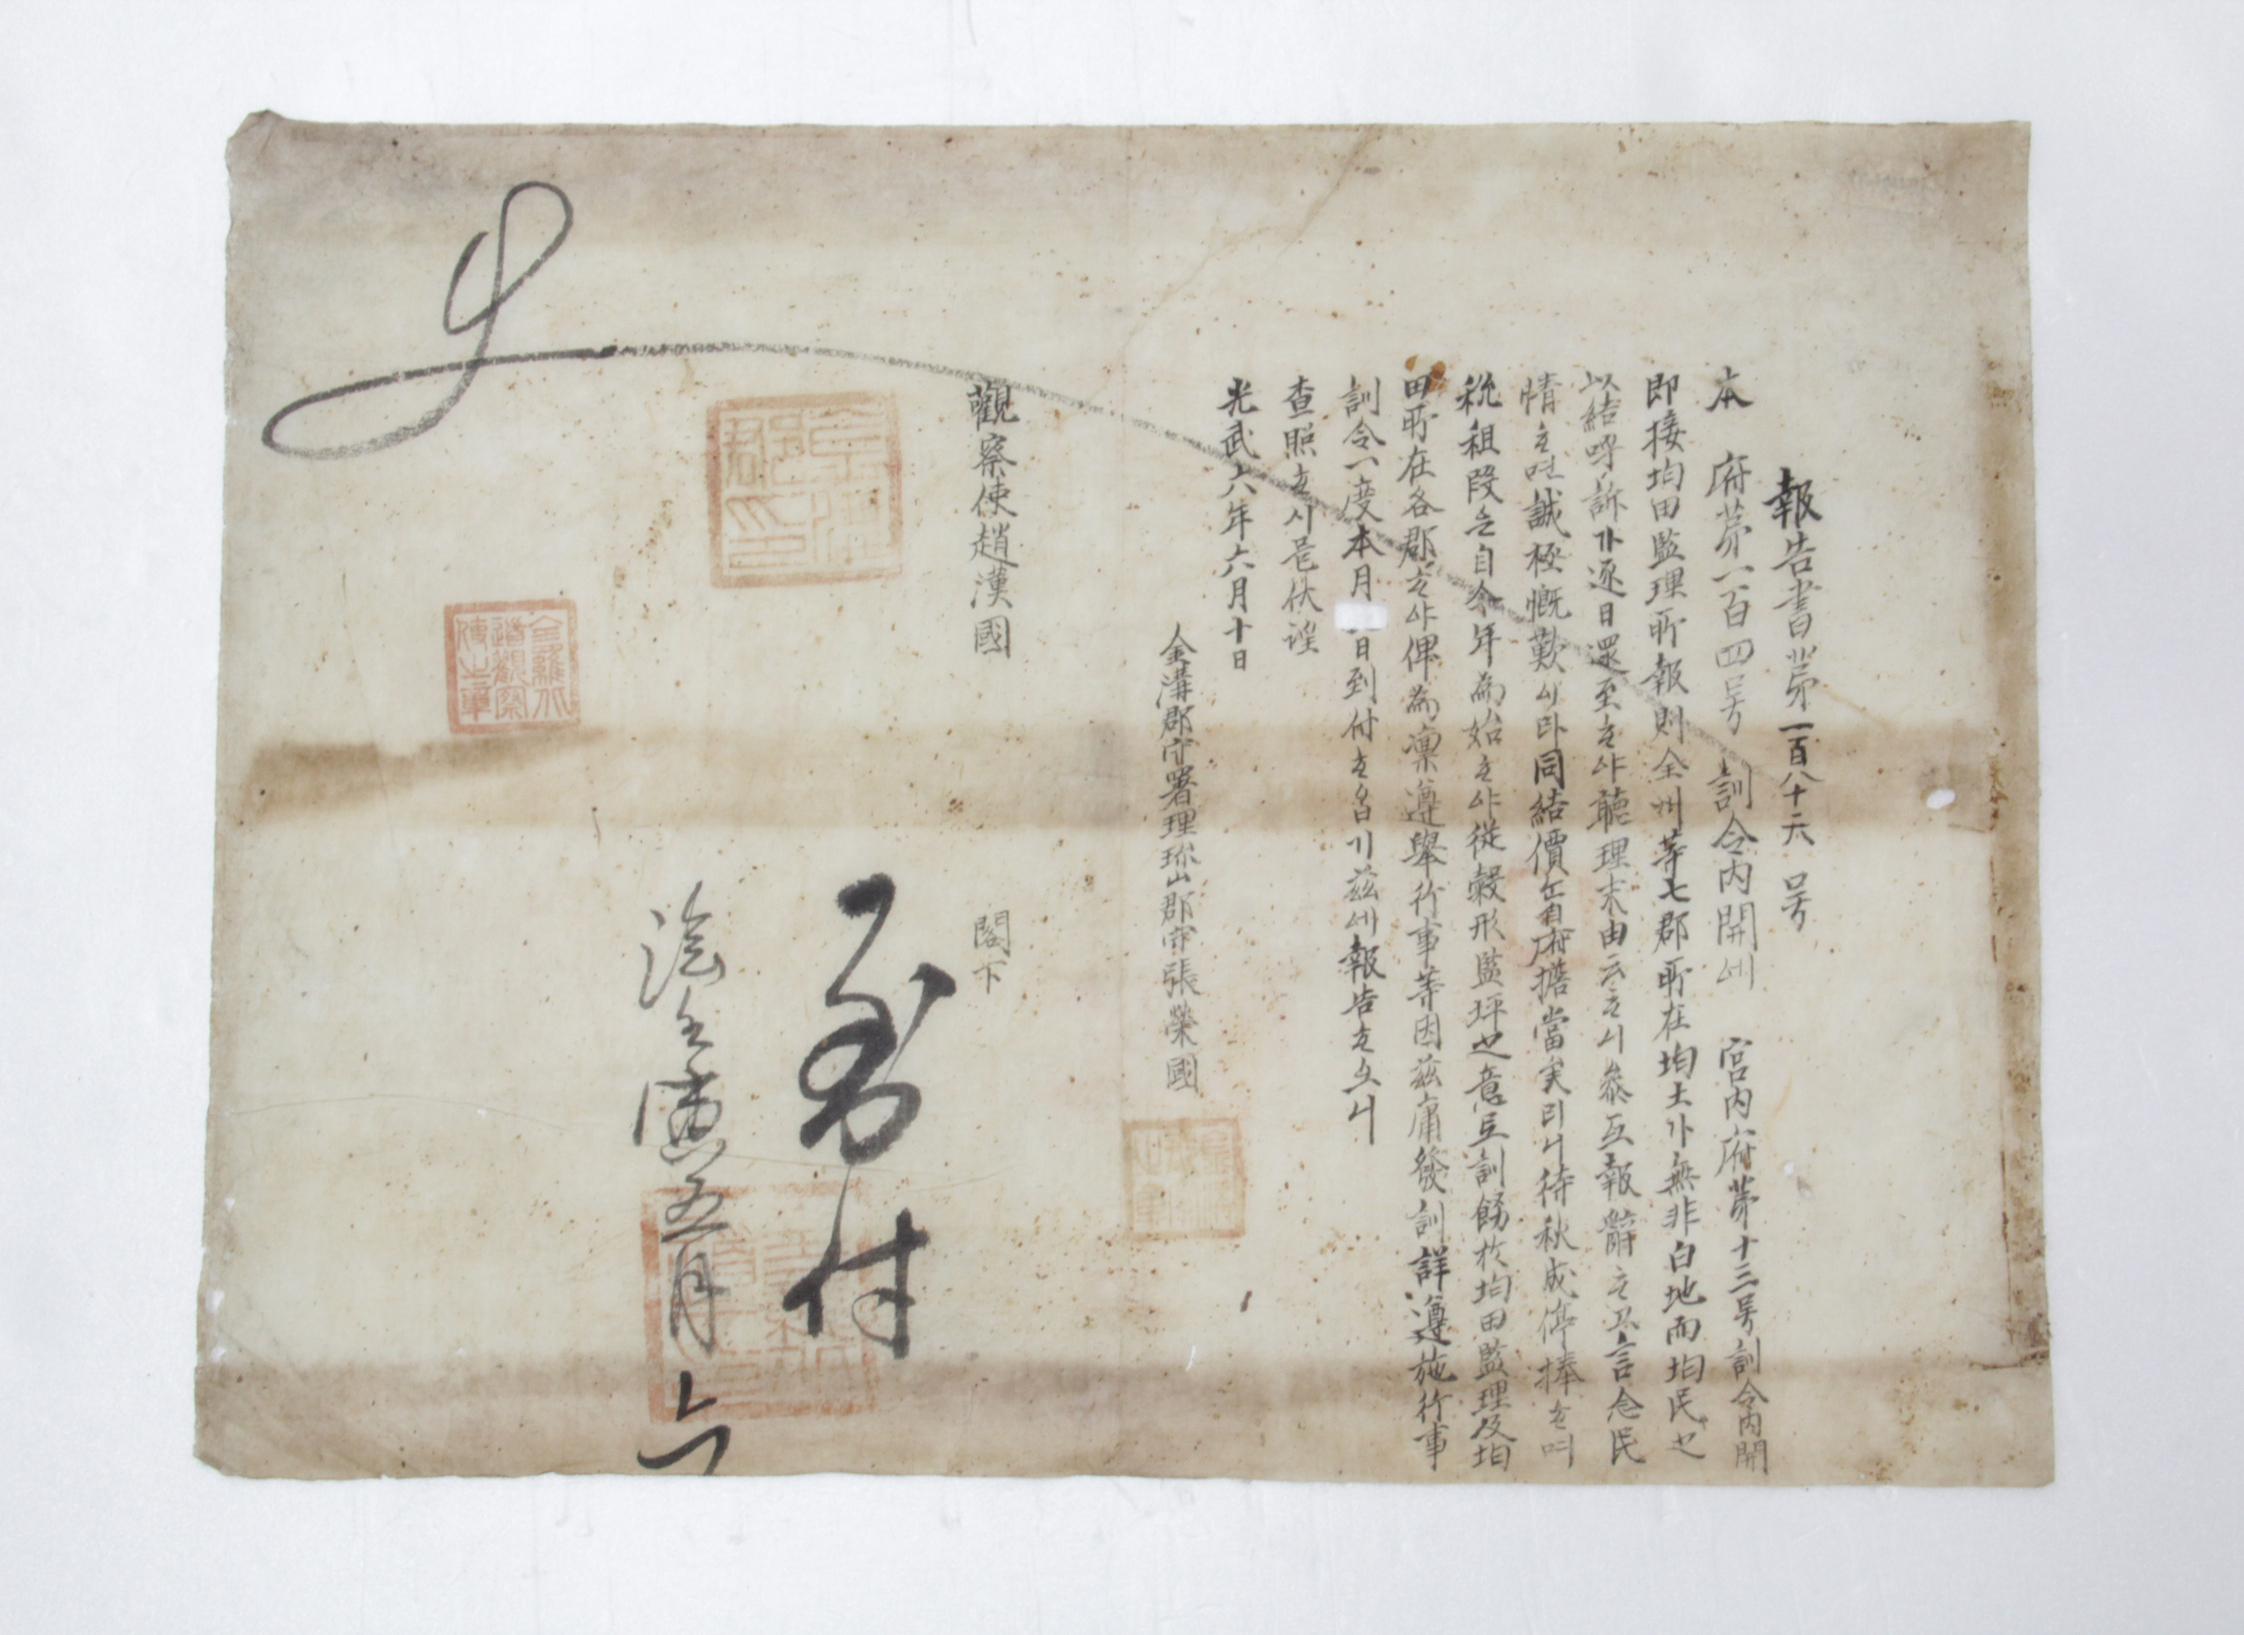 報告書 第一百八十六 号
本 府第一百四号 訓令內開에 宮內府第十三号訓令內開
即接均田監理所報則全州等七郡所在均土가無非白地而均民也
以結呼訴가逐日還至하야聽理末由云하니參互報辭하고言念民
情하면誠極慨歎이라同結價 自府擔當 待秋成停捧하며
稅租段은自今年為始하야從穀形監坪之意로訓飭於均田監理及均
田所在各郡하야俾為凜遵舉行事等因茲庸發訓詳遵施行事
訓令一度本月 日到付하옵기茲에報告하오니
查照하시믈伏望
光武六年六月十日
金溝郡守署理珍山郡守張榮國
觀察使趙漢國 閣下
到付
陰壬寅五月六
全羅北道觀察使之章